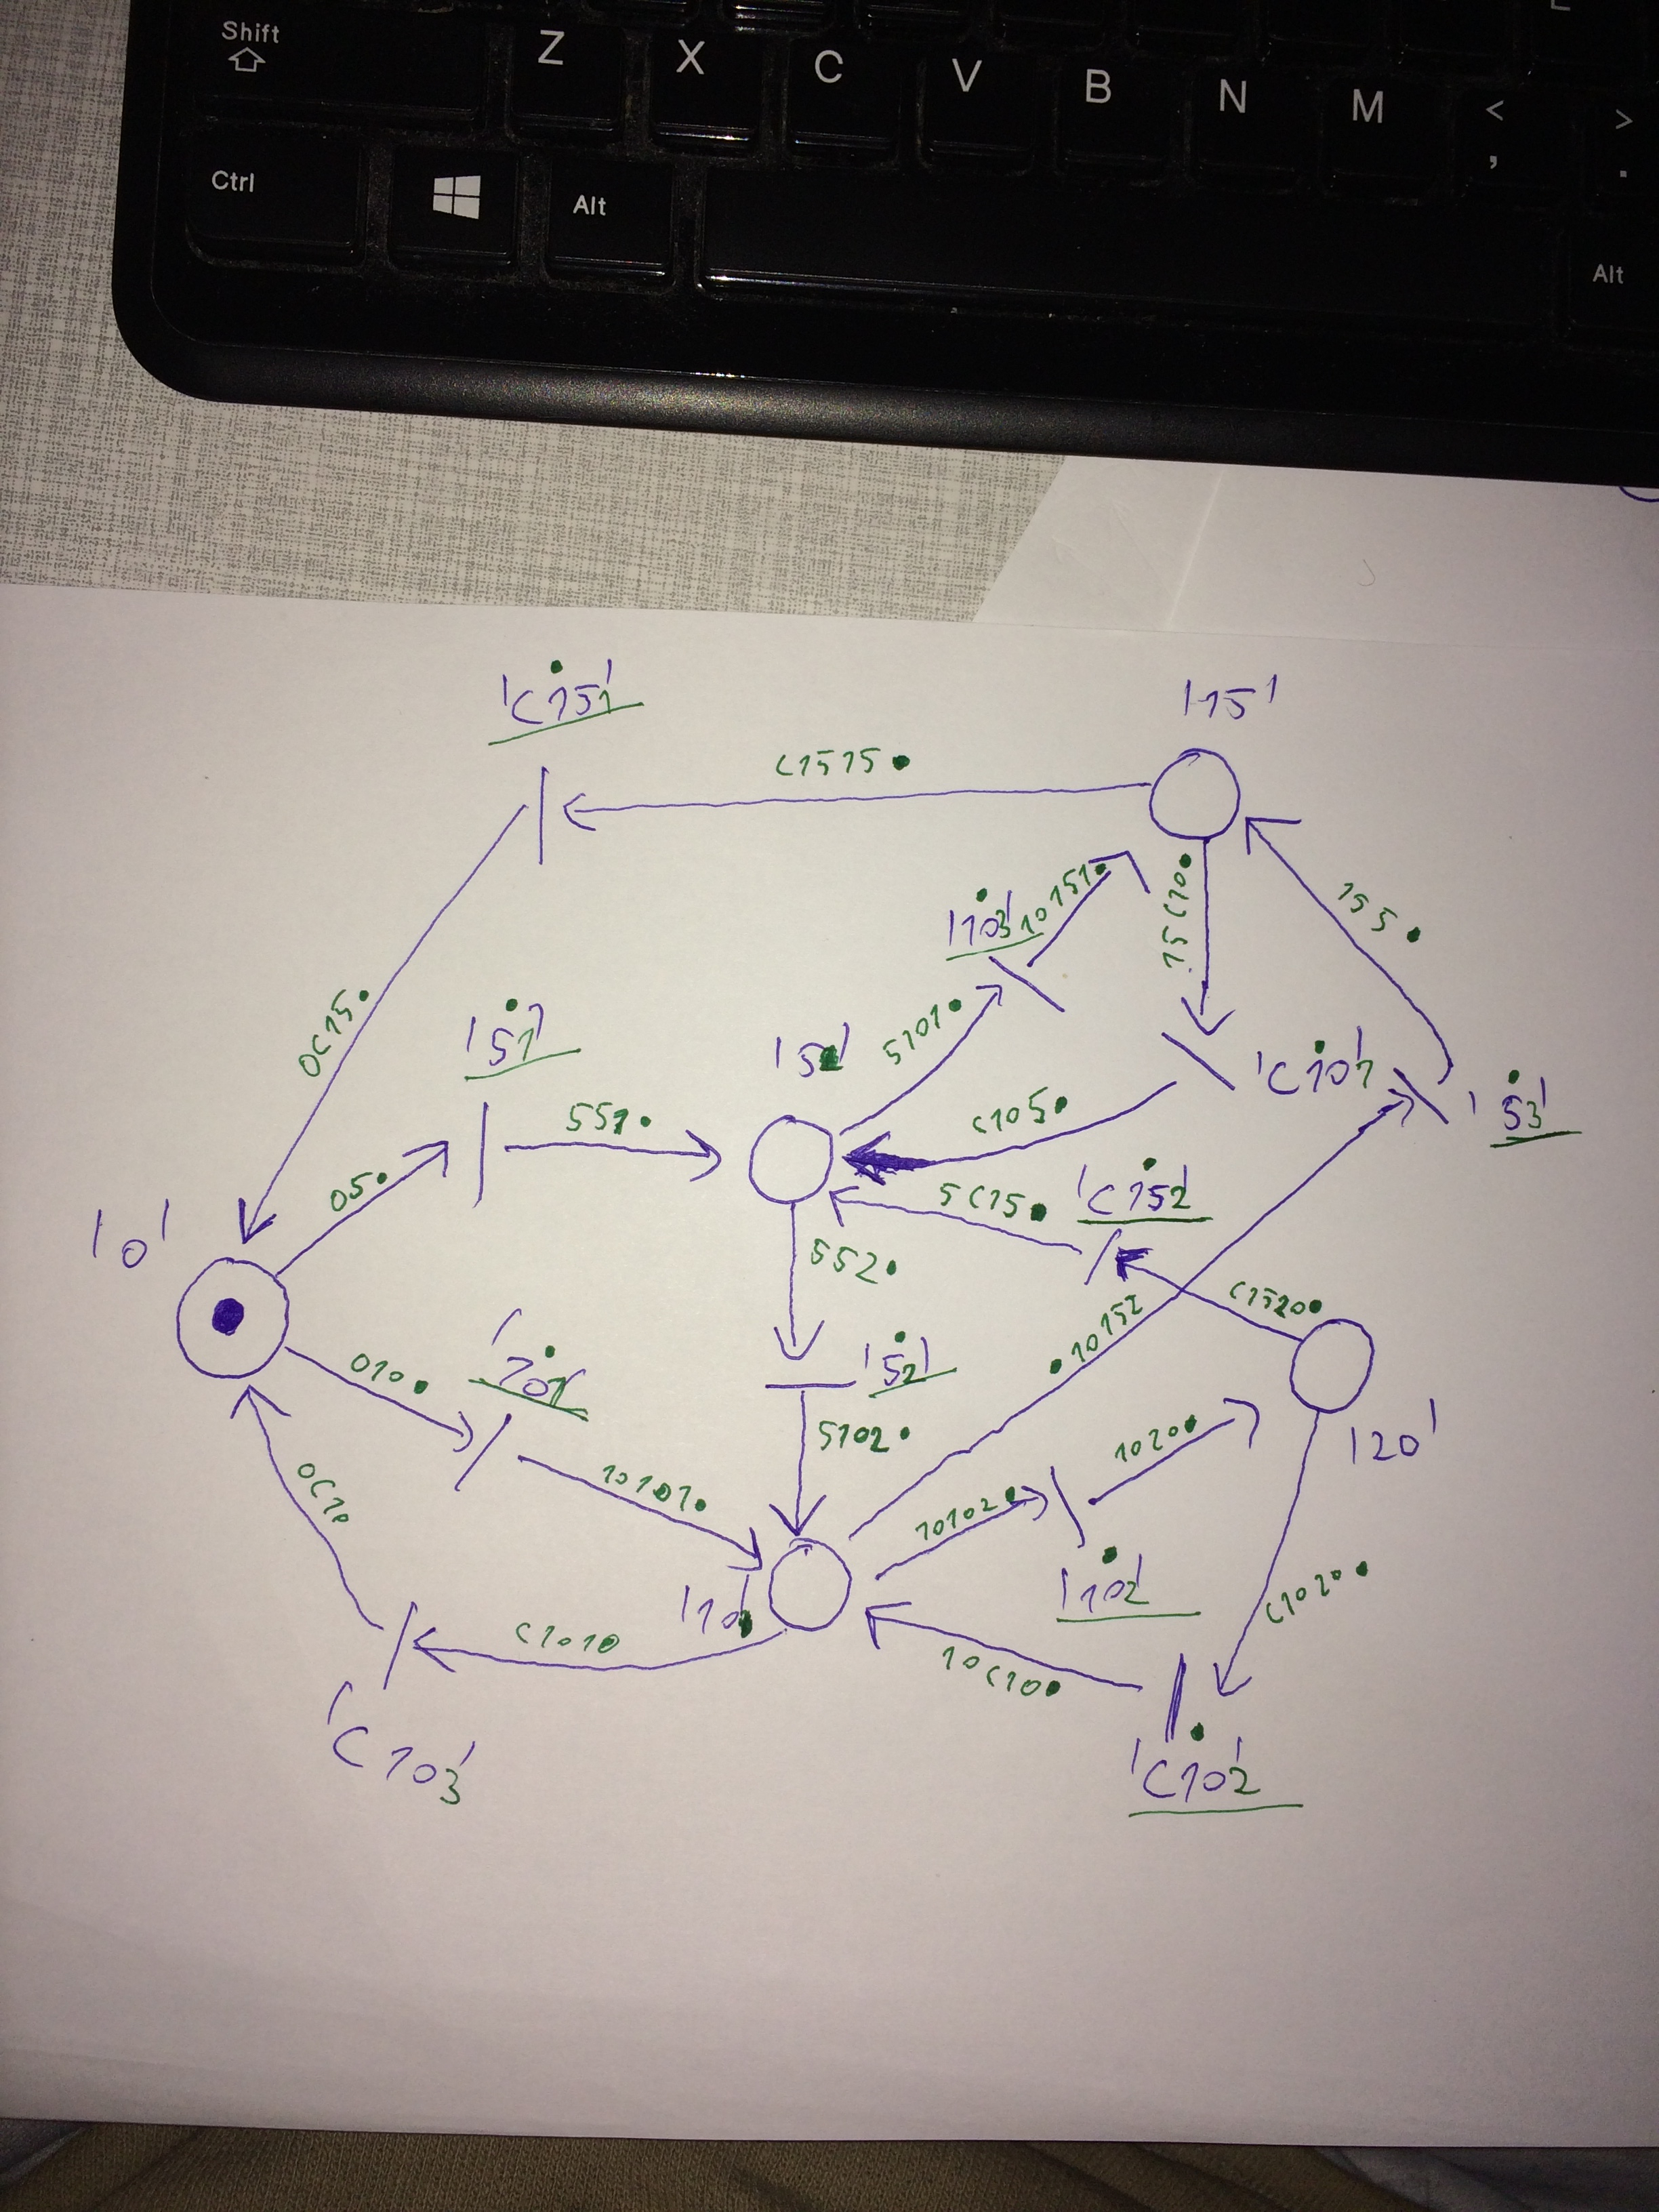 Shift
Z X C V B N M < >
, .
Ctrl Alt Alt
'C151'
'15'
C1515
'103'
10151
15C10
155
0C15
'51'
'5'
5101
'C101'
'53'
551
C105
05
5C15
'C152'
'0'
552
C1520
10152
010
'101'
'52'
5102
1020
'20'
0C10
10101
10102
'102'
'10'
C1010
C1020
10C10
'C103'
'C102'